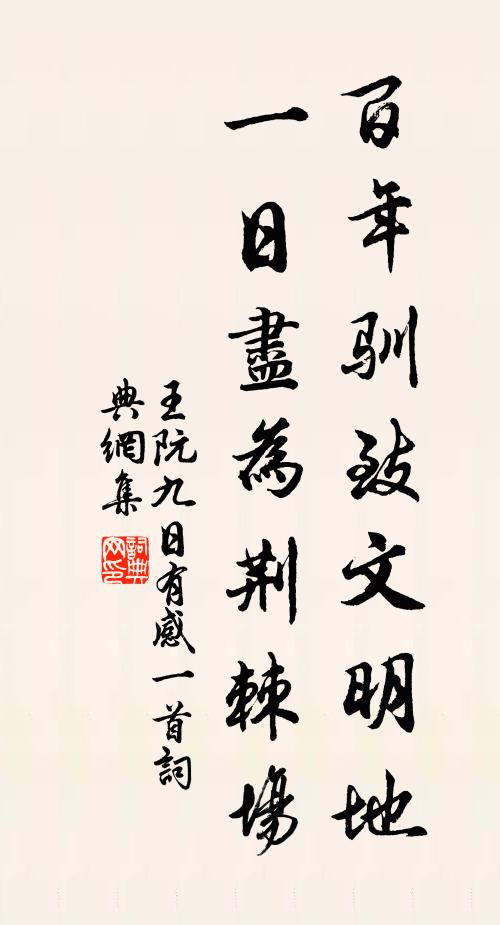 百年馴致文明地
一日盡為荆棘場
王阮九日有感一首詞
典網集
詞典
网印